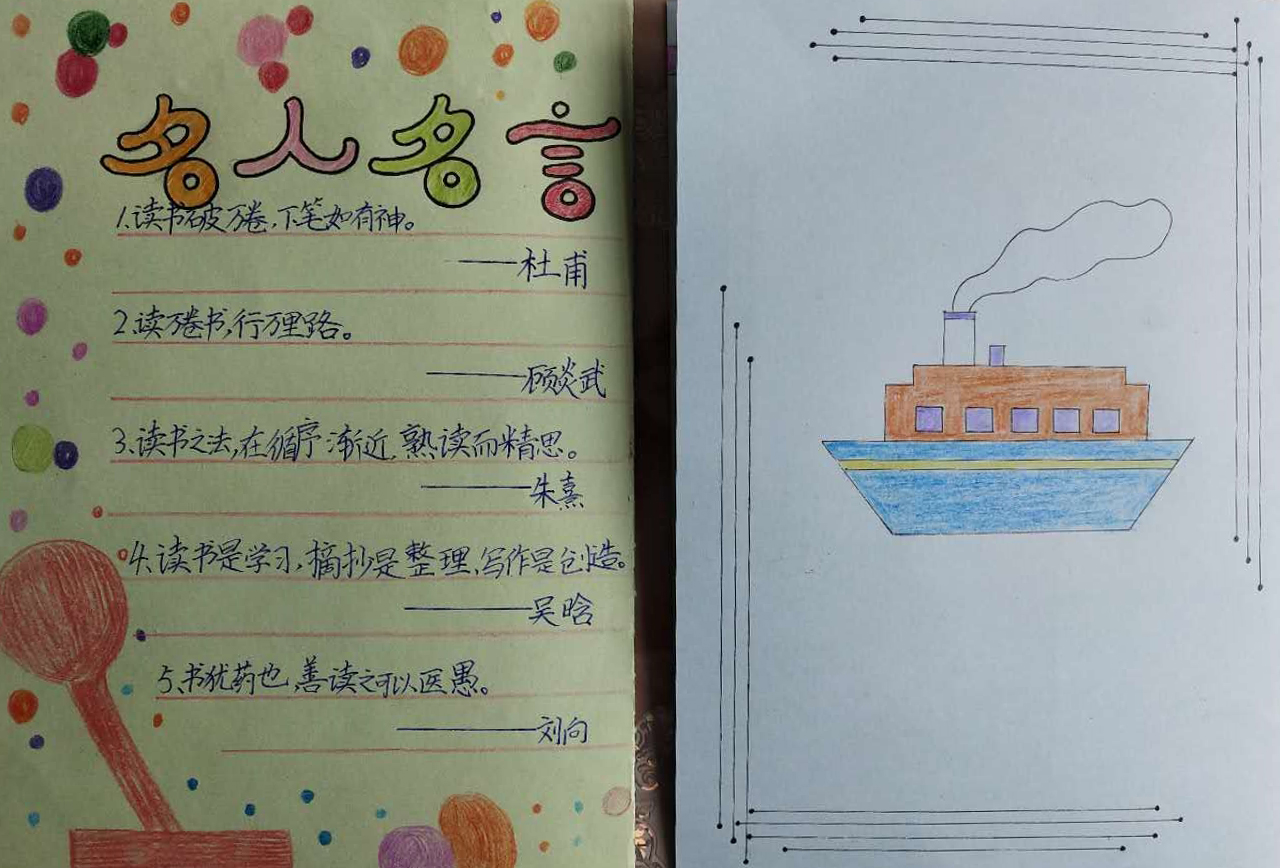 名人名言
1.读书破万卷,下笔如有神。
——杜甫
2.读万卷书,行万里路。
——顾炎武
3.读书之法,在循序渐近,熟读而精思。
——朱熹
4.读书是学习,摘抄是整理,写作是创造。
——吴晗
5.书犹药也,善读之可以医愚。
——刘向